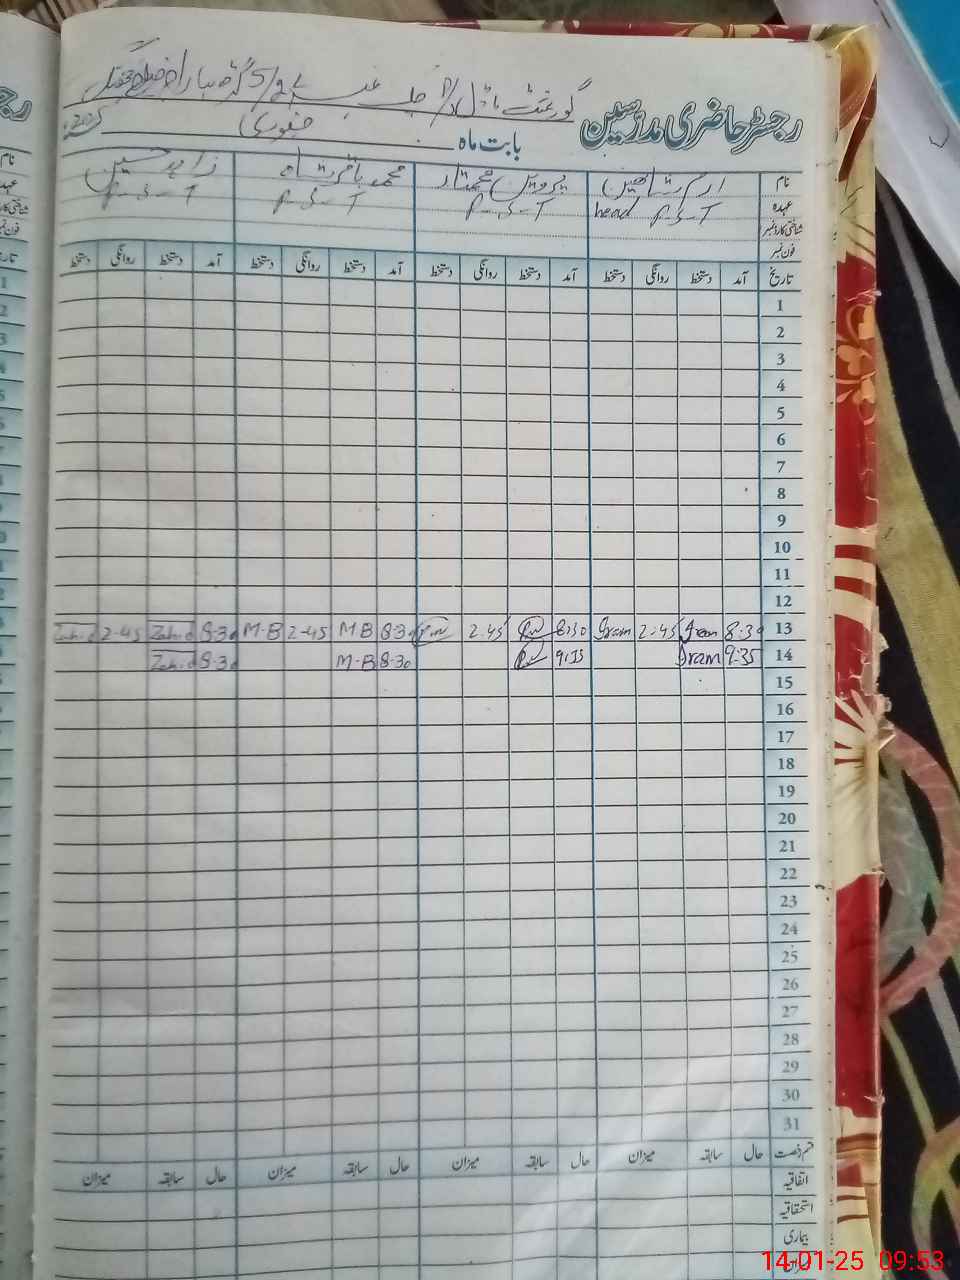 رجسٹر حاضری مدرسین
گورنمنٹ ماڈل
بابت ماہ جنوری 2025
نام ارم شاہین پروین مختار محمد باقر شاہ زاہد حسین
عہدہ head P-S-T P-S-T P-S-T P-S-T
شناختی کارڈ نمبر
فون نمبر
تاریخ آمد دستخط روانگی دستخط آمد دستخط روانگی دستخط آمد دستخط روانگی دستخط آمد دستخط روانگی دستخط
1
2
3
4
5
6
7
8
9
10
11
12
13 8:30 Iram 2:45 Iram 8:30 2:45 8-30 M-B 2-45 M-B 8-30 Zahid 2-45 Zahid
14 9:35 Iram 9:35 8-30 M-B 8-30 Zahid
15
16
17
18
19
20
21
22
23
24
25
26
27
28
29
30
31
قسم رخصت حال سابقہ میزان حال سابقہ میزان حال سابقہ میزان حال سابقہ میزان
اتفاقیہ
استحقاقیہ
بیماری
میزان
14-01-25 09:53